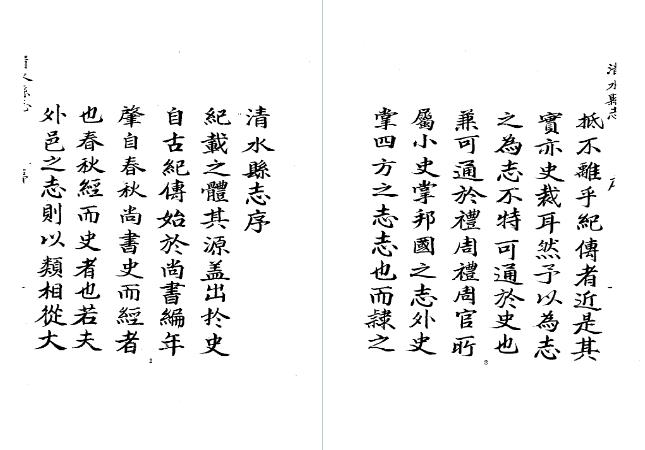 清水縣志序
紀載之體其源盖出扵史
自古紀傳始於尚書編年
肇自春秋尚書史而經者
也春秋經而史者也若夫
外邑之志則以類相從大
2
清水縣志
抵不離乎紀傳者近是其
實亦史裁耳然予以為志
之為志不特可通於史也
兼可通於禮周禮周官所
屬小史掌邦國之志外史
掌四方之志志也而隸之
3